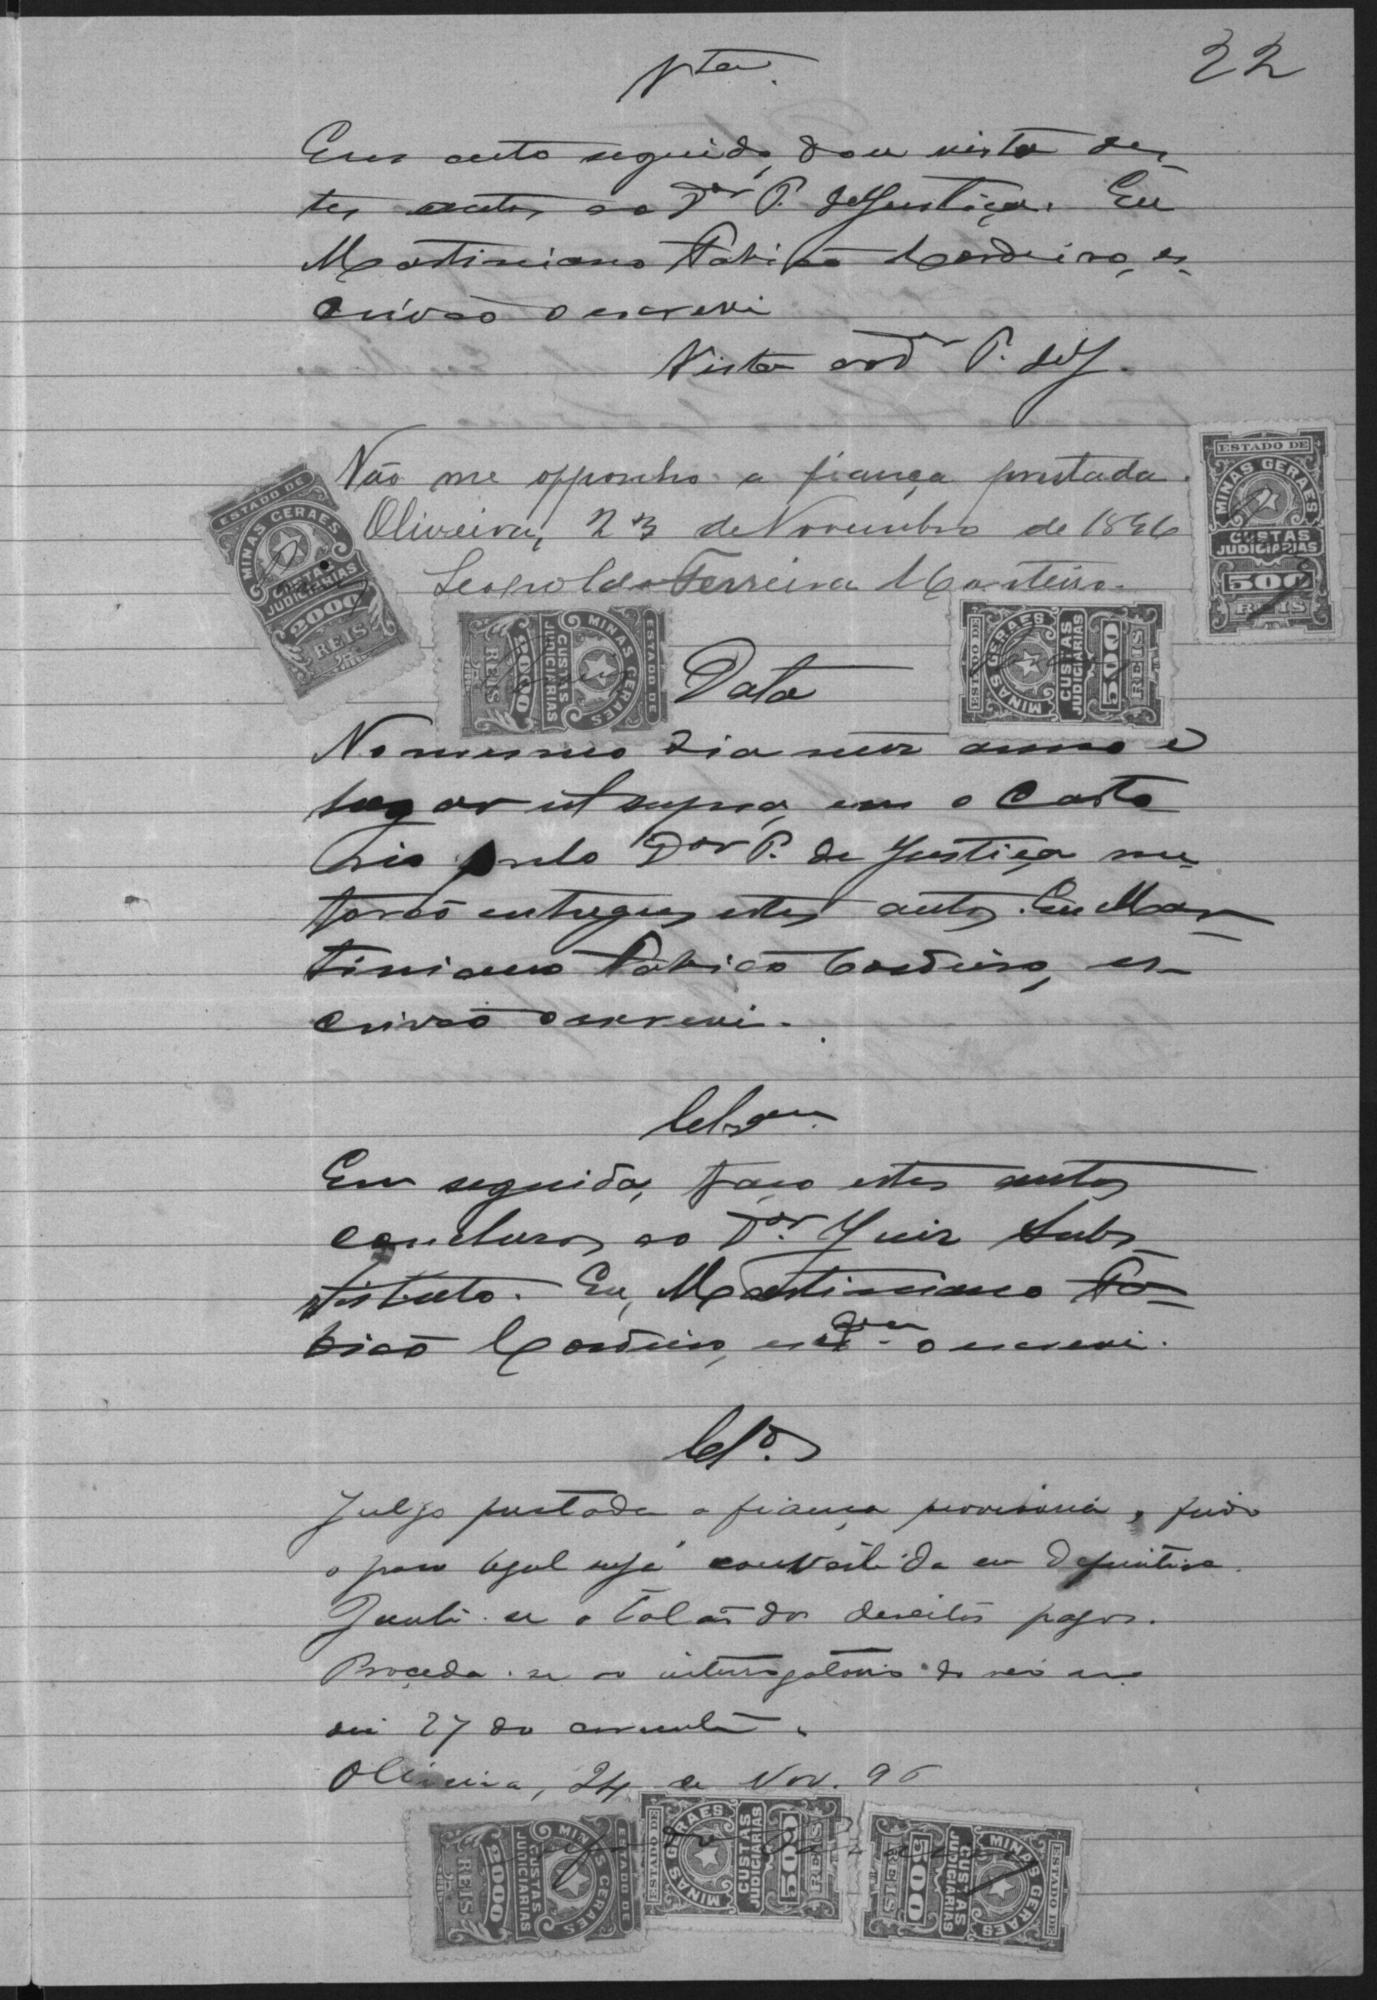 22
Vta.
Em acto seguido, dou vista des-
tes autos ao Dor. P. de Justiça. Eu
Martiniano Fabião Cordeiro, es-
crivão o escrevi
Vista ao Dr P. de J.
Não me opponho a fiança prestada.
Oliveira, 23 de Novembro de 1896
Leopoldo Ferreira Monteiro.
ESTADO DE MINAS GERAES CUSTAS JUDICIARIAS 2000 REIS
ESTADO DE MINAS GERAES CUSTAS JUDICIARIAS 500 REIS
ESTADO DE MINAS GERAES CUSTAS JUDICIARIAS 2000 REIS
ESTADO DE MINAS GERAES CUSTAS JUDICIARIAS 500 REIS
Data
No mesmo dia mez anno e
lugar ut supra, em o Carto
rio pelo Dor P. de Justiça me
forão entregues estes autos. Eu Mar-
tiniano Fabião Cordeiro, es-
crivão o escrevi.
Clsam.
Em seguida, faço estes autos
conclusos ao Dor. Juiz Subs
tituto. Eu, Martiniano Fa-
bião Cordeiro, o escrevi.
Clos
Julgo prestada a fiança provisoria, findo
o praso legal seja convertida em definitiva.
Junte-se o talão dos direitos pagos.
Proceda-se ao interrogatorio do reo no
dia 27 do corrente.
Oliveira, 24 de Nov. 96
ESTADO DE MINAS GERAES CUSTAS JUDICIARIAS 2000 REIS
ESTADO DE MINAS GERAES CUSTAS JUDICIARIAS 500 REIS
ESTADO DE MINAS GERAES CUSTAS JUDICIARIAS 500 REIS